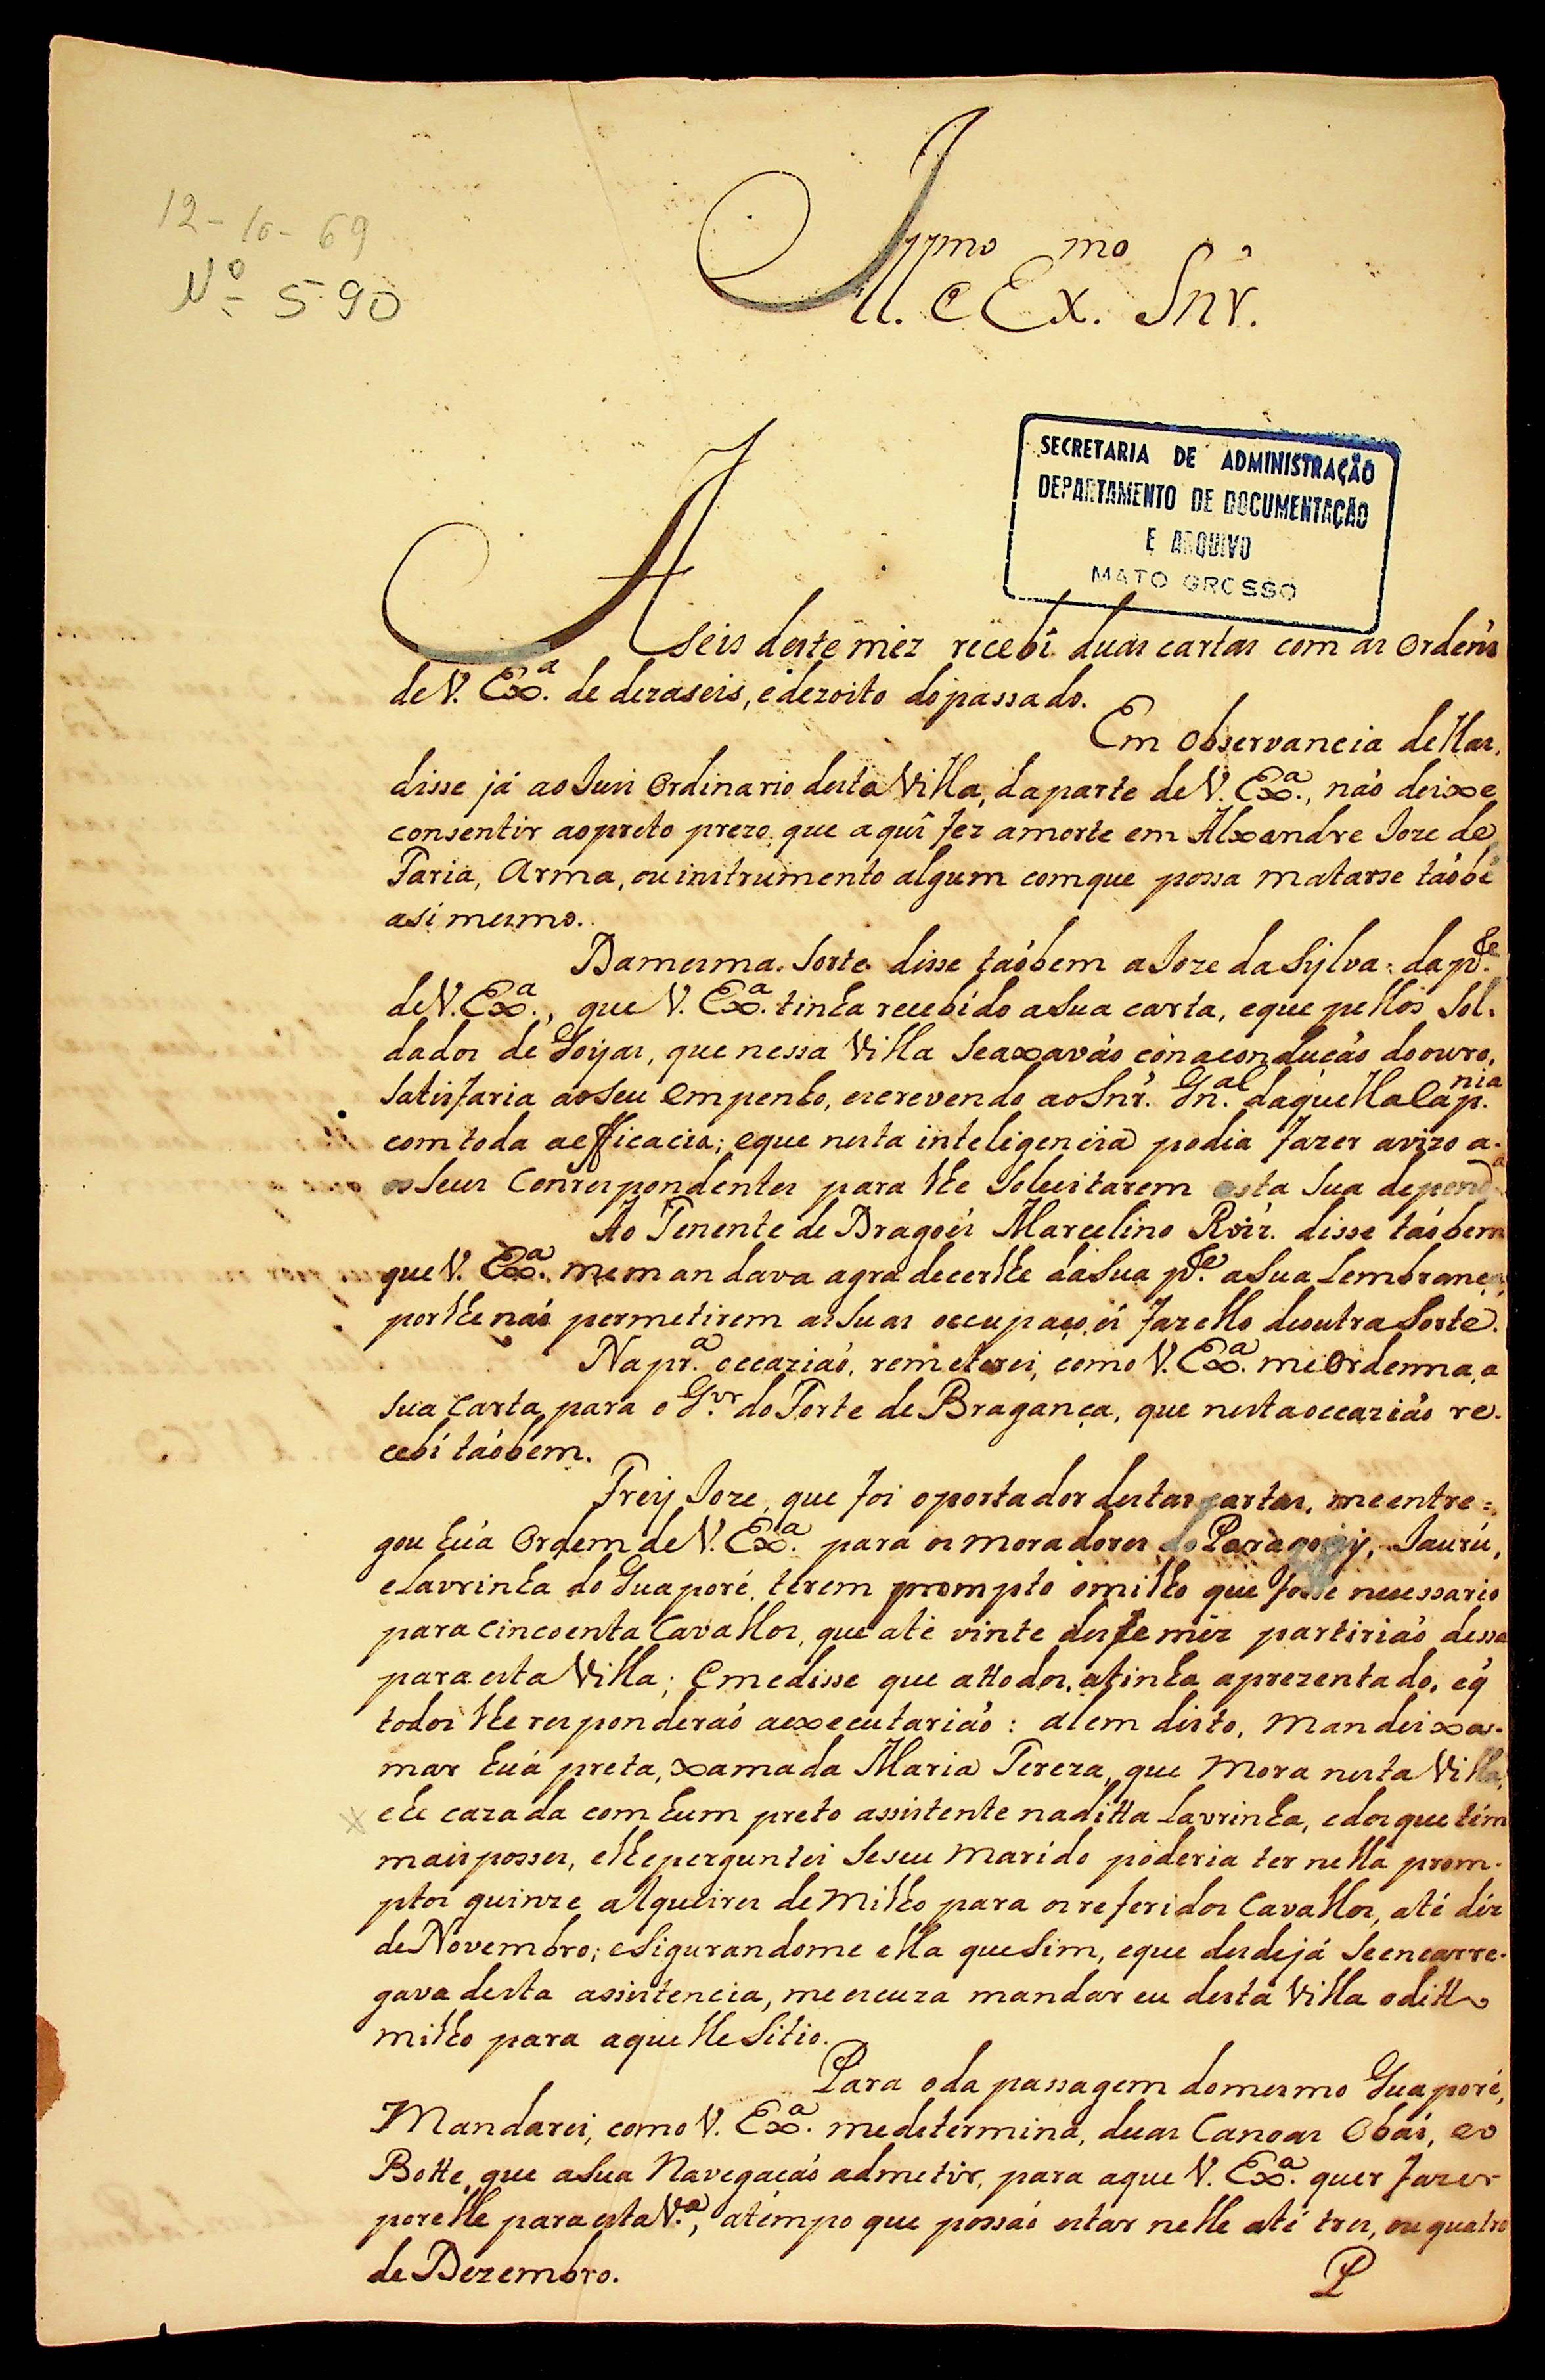 12-10-69
Nº 590
Illmo e Exmo Snr.
SECRETARIA DE ADMINISTRAÇÃO
DEPARTAMENTO DE DOCUMENTAÇÃO
E ARQUIVO
MATO GROSSO
A seis deste mez recebî duas cartas com as Ordéns
de V. Exª. de dezaseis, e dezoito do passado.
Em Observancia dellas,
disse já ao Juis Ordinario desta Villa, da parte de V. Exª., não deixe
consentir ao preto prezo, que aquî fez a morte em Alxandre Joze de
Faria, Arma, ou instrumento algum com que possa matarse taõbē
a sí mesmo.
Da mesma sorte disse taõbem a Joze da Sylva: da pte.
de V. Exª., que V. Exª. tinha recebído a sua carta, e que pellos Sol-
dados de Goyas, que nessa Villa se axavaõ con a conduçaõ do ouro,
satisfaria ao seu empenho, escrevendo ao Snr. Gnal. daquella Capnia.
com toda a efficacia; e que nesta inteligencia podia fazer avizo a-
os seus Conrespondentes para lhe soluitarem esta sua depend.ª
Ao Tenente de Dragoés Marcelino Roiz. disse taõbem
que V. Exª. me mandava agradecerlhe da sua pte. a sua Lembrança,
por lhe naõ permetirem as suas occupaçoẽs fazello de outra sorte.
Na prª. occaziaõ, remeterei, como V. Exª. me Ordenna, a
sua Carta para o Gvr. do Forte de Bragança, que nesta occaziaõ re-
cebí taõbem.
Frey Joze, que foi o portador destas cartas, me entre-
gou huá Ordem de V. Exª. para os moradores do Paragoáy, Jaurú,
e Lavrinha do Guaporé, terem prompto o milho que fosse necessario
para cincoenta Cavallos, que até vinte deste méz partiriaõ dessa
para esta Villa; e me disse que a ttodos, a tinha aprezentado, e q̃
todos lhe responderaõ a executariaõ: alem disto, mandei xa-
mar huá preta, xamada Maria Tereza, que mora nesta Villa,
e hé cazada com hum preto assistente na ditta Lavrinha, e dos que tém
mais posses, e lhe perguntei se seu marído poderia ter nella prom-
ptos quinze alqueires de milho para os referidos Cavallos, até déz
de Novembro; e sigurandome ella que sim, e que desde já se encarre-
gava desta assistencia, me escuza mandar eu desta Villa o ditto
milho para aquelle sitio.
Para o da passagem do mesmo Guaporé,
Mandarei, como V. Exª. me determina, duas Canoas Obás, e o
Botte, que a sua Navegaçaõ admetir, para a que V. Exª. quer fazer
por elle para esta V.ª, a témpo que possaõ estar nelle até tres, ou quatro
de Dezembro.
P